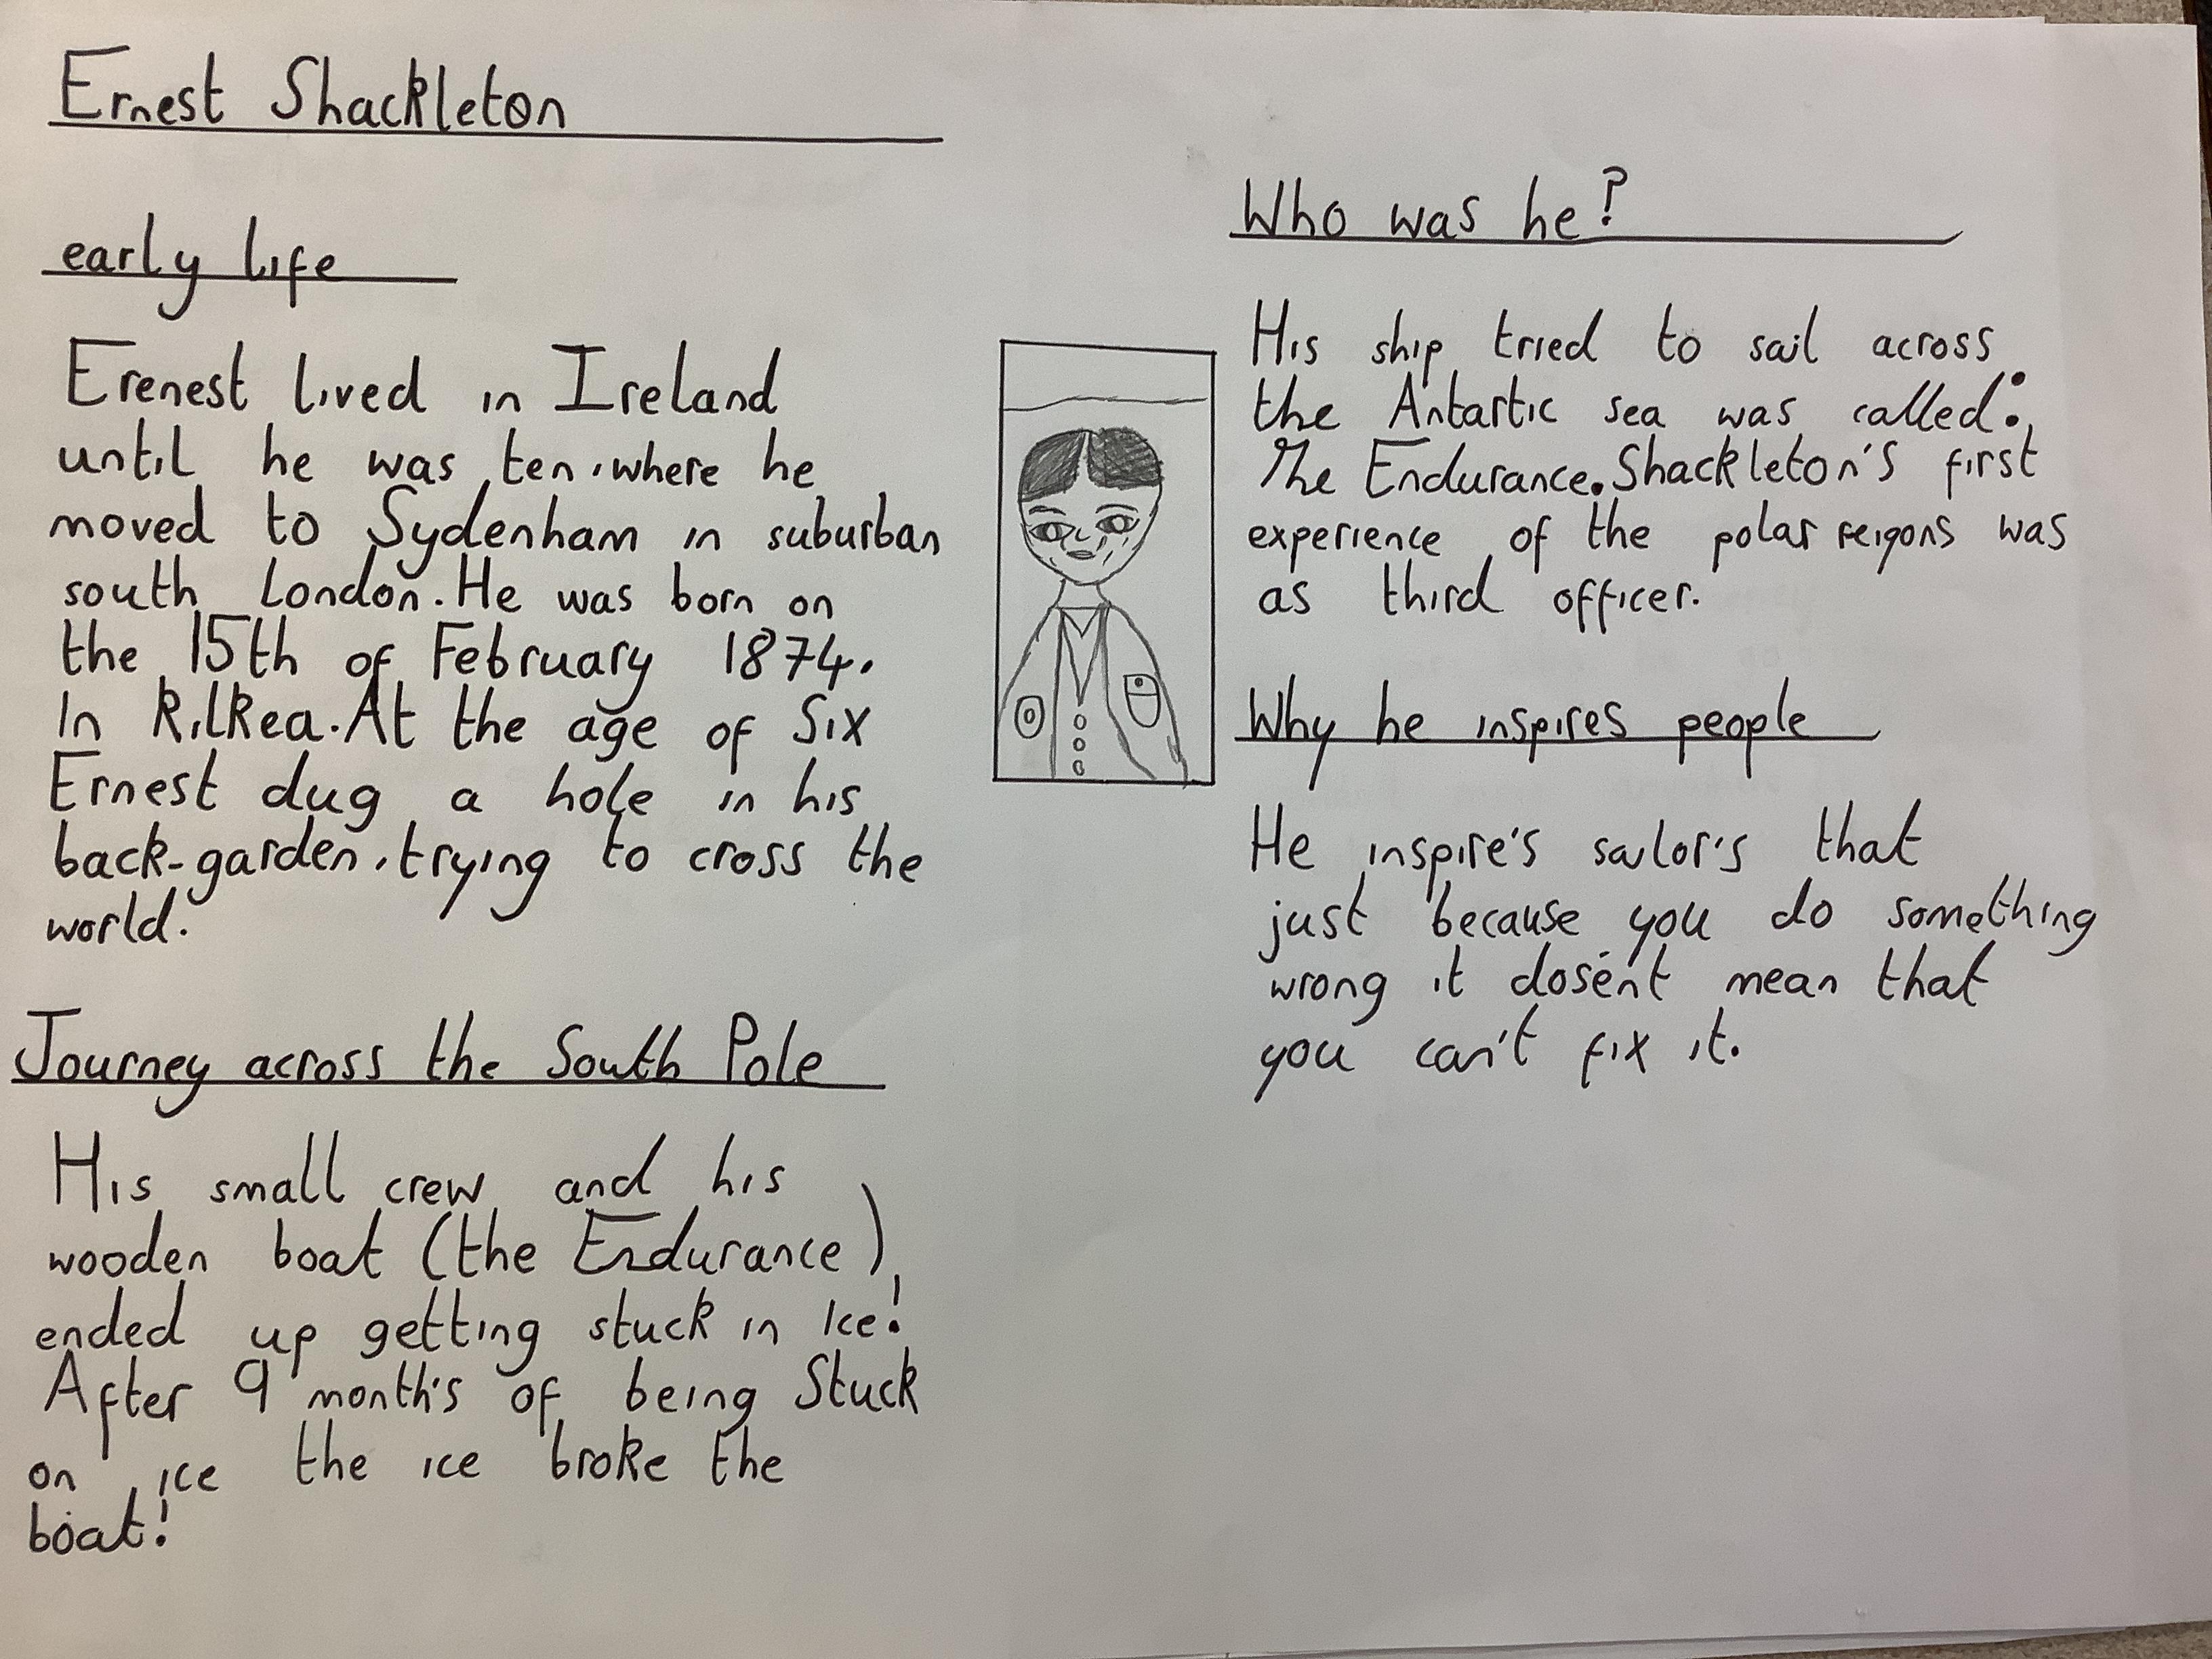 Ernest Shackleton
early life
Erenest lived in Ireland
until he was ten, where he
moved to Sydenham in suburban
south London. He was born on
the 15th of February 1874.
In Kilkea. At the age of Six
Ernest dug a hole in his
back-garden, trying to cross the
world.
Journey across the South Pole
His small crew and his
wooden boat (the Endurance)
ended up getting stuck in Ice!
After 9 month's of being Stuck
on ice the ice broke the
boat!
Who was he?
His ship tried to sail across
the Antartic sea was called:
The Endurance. Shackleton's first
experience of the polar reigons was
as third officer.
Why he inspires people
He inspire's sailor's that
just because you do something
wrong it dosen't mean that
you can't fix it.